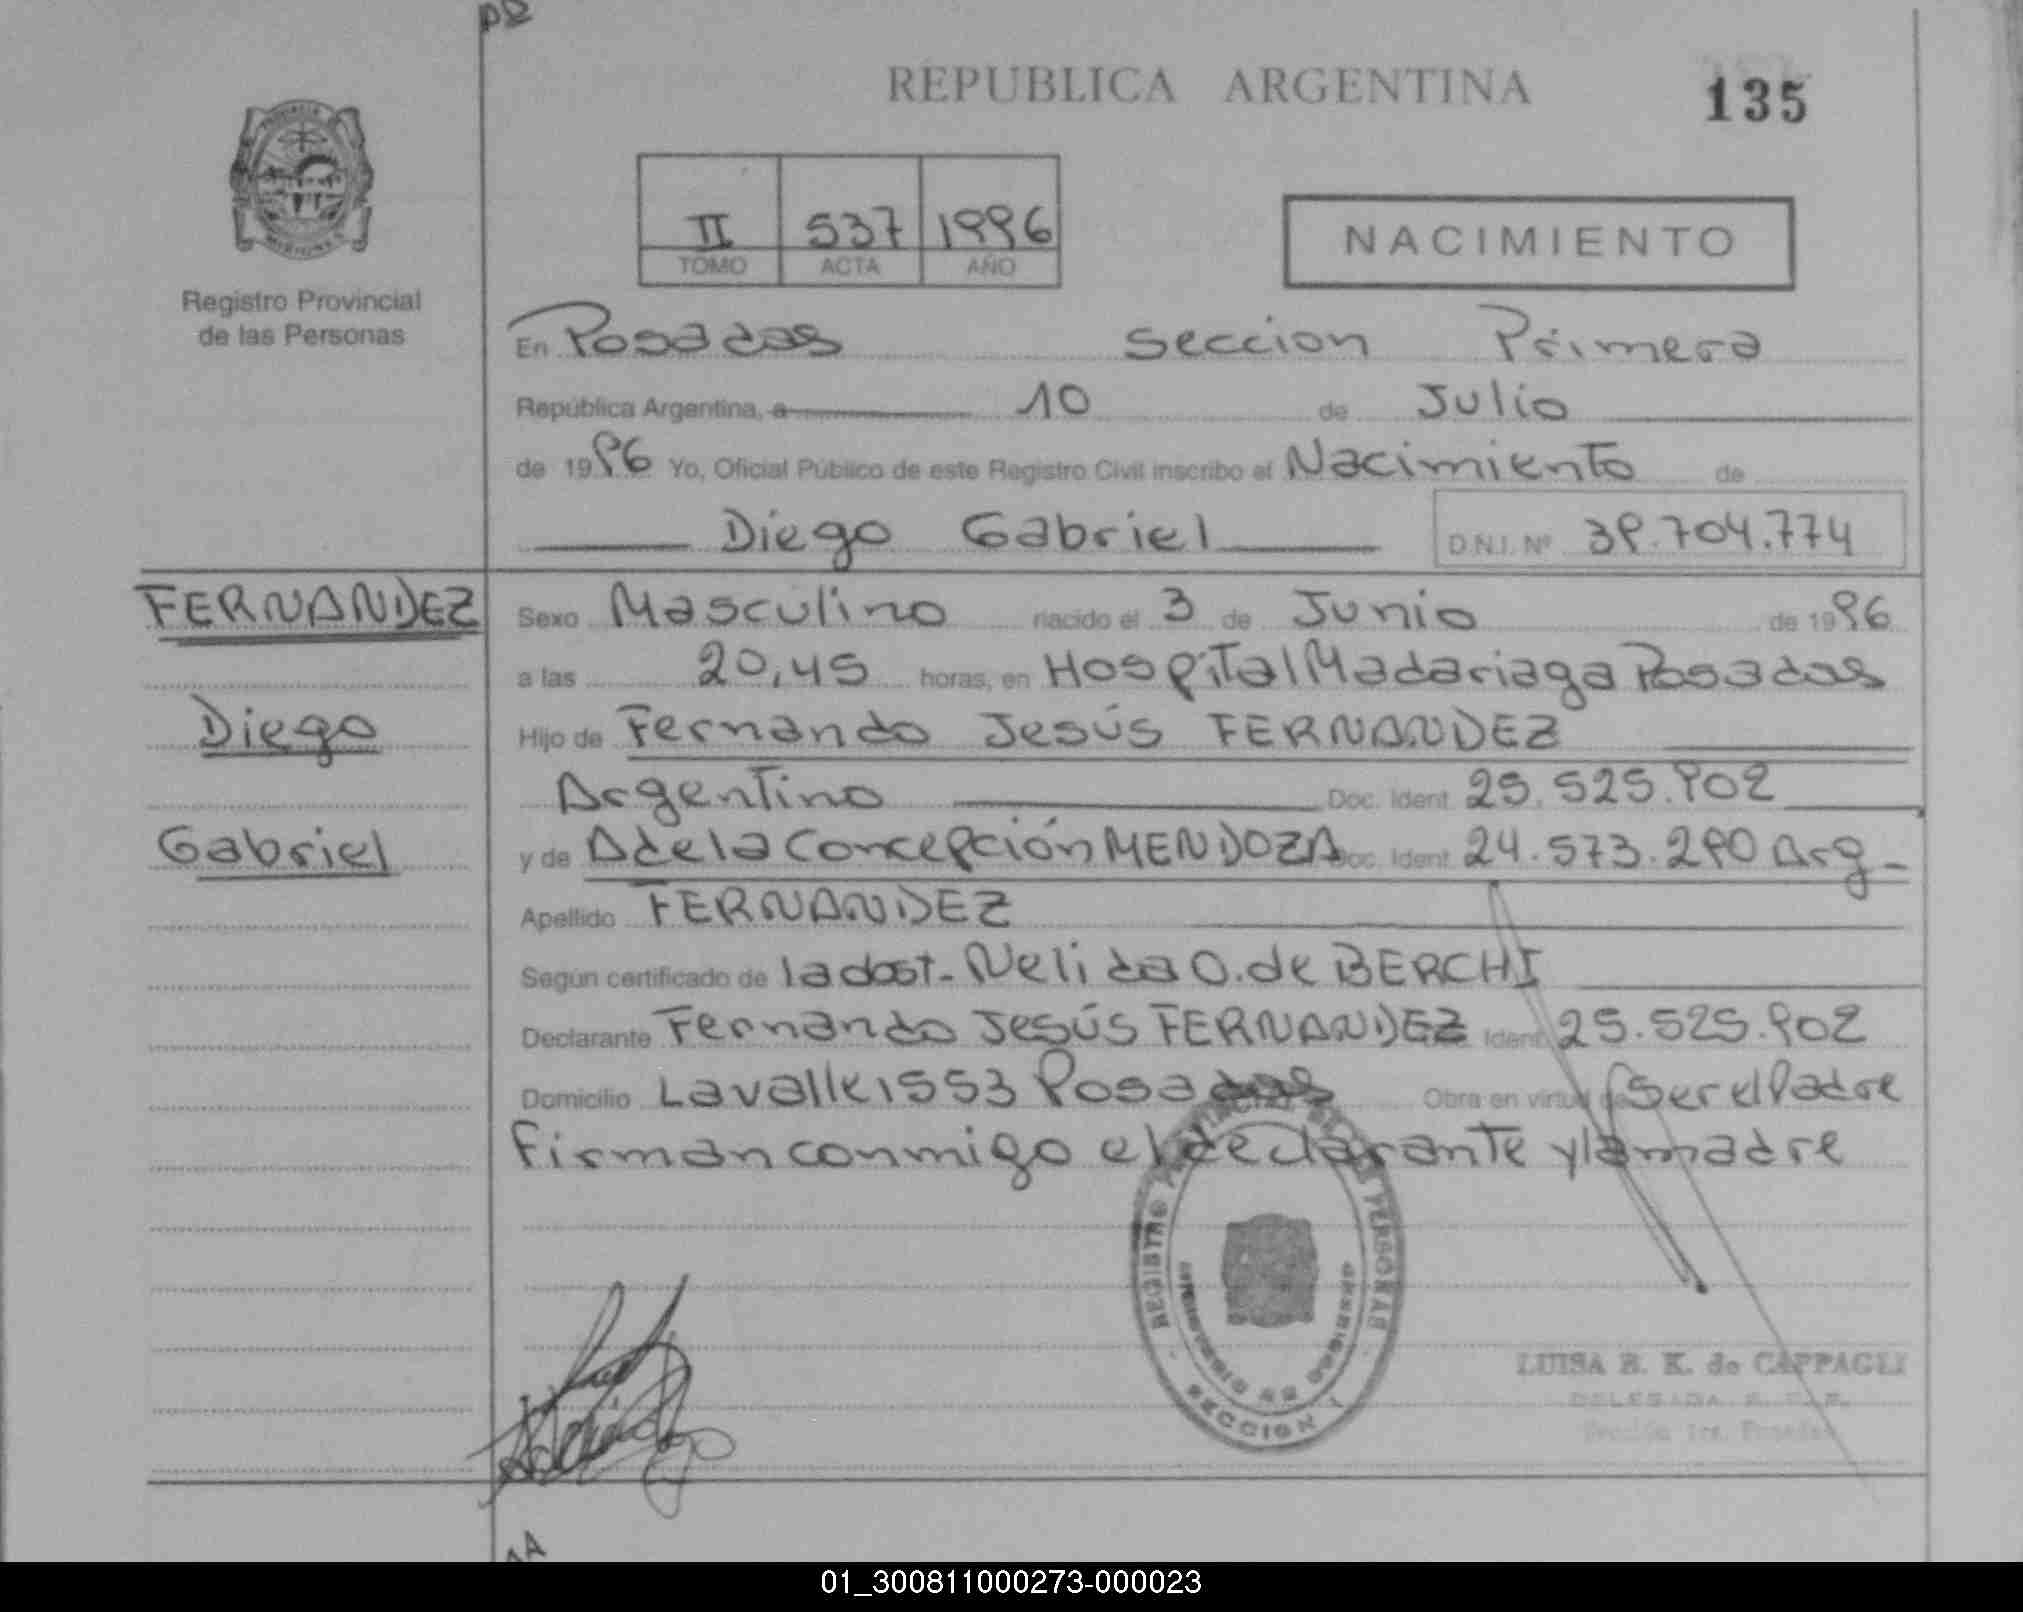 REPUBLICA ARGENTINA
135
II 537 1996
TOMO ACTA AÑO
NACIMIENTO
Registro Provincial
de las Personas
En Posadas seccion Primera
República Argentina, a 10 de Julio
de 1996 Yo, Oficial Público de este Registro Civil inscribo el Nacimiento de
Diego Gabriel D.N.I. Nº 39.704.774
FERNANDEZ
Diego
Gabriel
Sexo Masculino nacido el 3 de Junio de 1996
a las 20,45 horas, en Hospital Madariaga Posadas
Hijo de Fernando Jesús FERNANDEZ
Argentino Doc. Ident 25.525.902
y de Adela Concepción MENDOZA Doc. Ident 24.573.290 Arg-
Apellido FERNANDEZ
Según certificado de la obst- Nelida O. de BERCHI
Declarante Fernando Jesús FERNANDEZ Ident 25.525.902
Domicilio Lavalle 1553 Posadas Obra en virtud de ser el Padre
Firman conmigo el declarante y la madre
REGISTRO PROVINCIAL DE LAS PERSONAS
SECCION 1
LUISA B. K. de CAPPAGLI
DELEGADA R. P. P.
Sección 1ra. Posadas
01_300811000273-000023